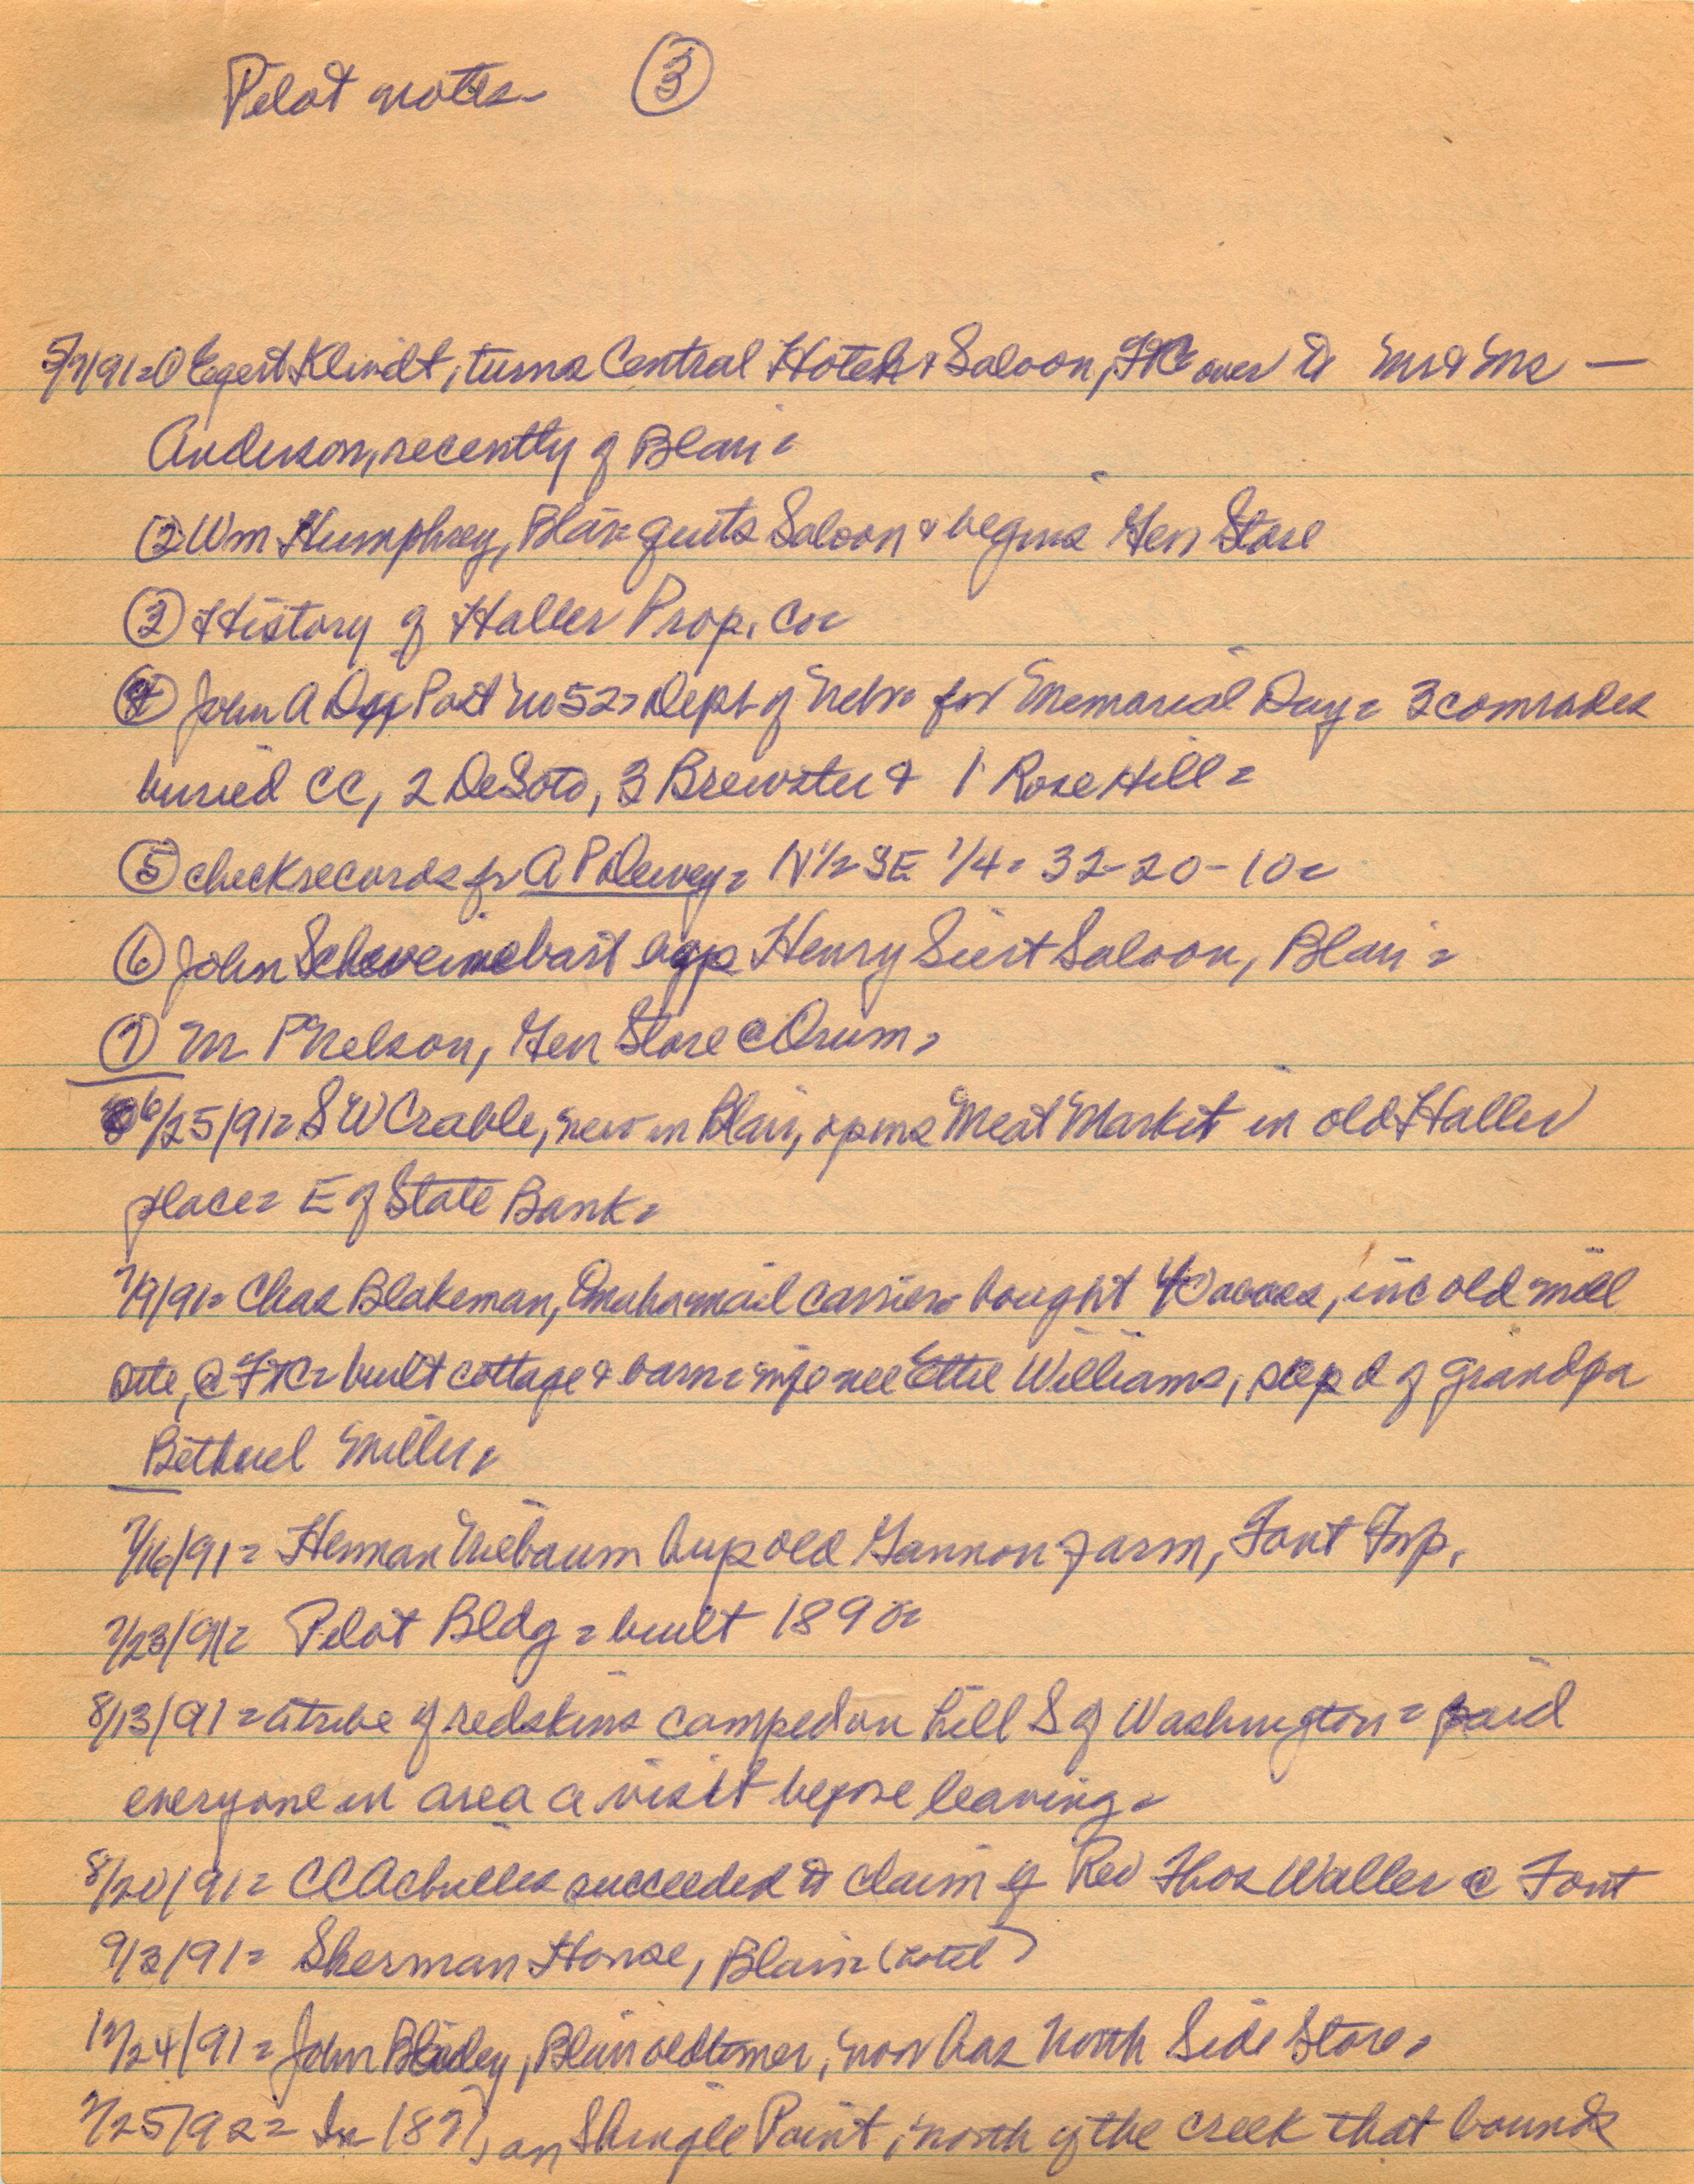 Pilot notes ③
5/7/91= ① Egert Klindt, turns Central Hotel & Saloon, FtC over to Mr & Mrs —
Anderson, recently of Blair=
② Wm Humphrey, Blair= quits Saloon & begins Gen Store
③ History of Haller Prop. Co=
④ John A Post No 52= Dept of Nebr for Memorial Day= 3 comrades
buried CC, 2 DeSoto, 3 Brewster & 1 Rose Hill=
⑤ check records for A P Dewey= N 1/2 SE 1/4= 32-20-10=
⑥ John Henry Siert Saloon, Blair=
⑦ M P Nelson, Gen Store @ Orum=
6/25/91= S W Crable, new in Blair, opens Meat Market in old Haller
place= E of State Bank=
7/9/91= Chas Blakeman, Omaha mail carrier= bought 40 acres, inc old mill
site, @ FtC= built cottage & barn= wife nee Ettie Williams, step d of grandpa
Bethuel Miller=
7/16/91= Herman Niebaum buys old Gannon farm, Font Twp.
7/23/91= Pilot Bldg= built 1890=
8/13/91= a tribe of redskins camped on hill S of Washington= paid
everyone in area a visit before leaving=
8/20/91= C C Achilles succeeded to claim of Rev Thos Waller @ Font
9/3/91= Sherman House, Blair= (hotel)
12/24/91= John, Blair oldtimer, now has North Side Store=
2/25/92= In 187, on Shingle Point, north of the creek that bounds